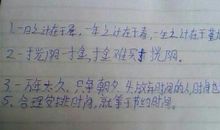 1.一日之计在于晨,一年之计在于春,一生之计在于勤
2.一寸光阴一寸金,寸金难买寸光阴。
3.一万年太久,只争朝夕 4.放弃时间的人,时间也
5.合理安排时间,就等于节约时间。